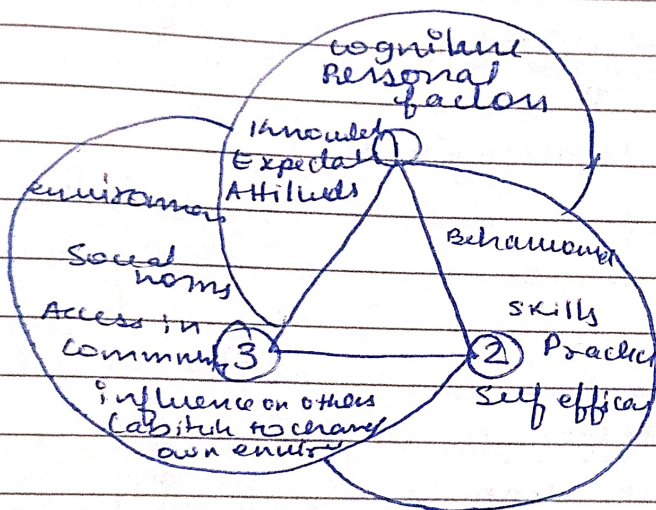 cognitive
Personal
factors
Knowled
Expectat
Attituds
1
environmen
Social
norms
Access in
commun
3
influence on others
(abitity to change
own enviro
Behavioural
Skills
2
Practice
Self effica